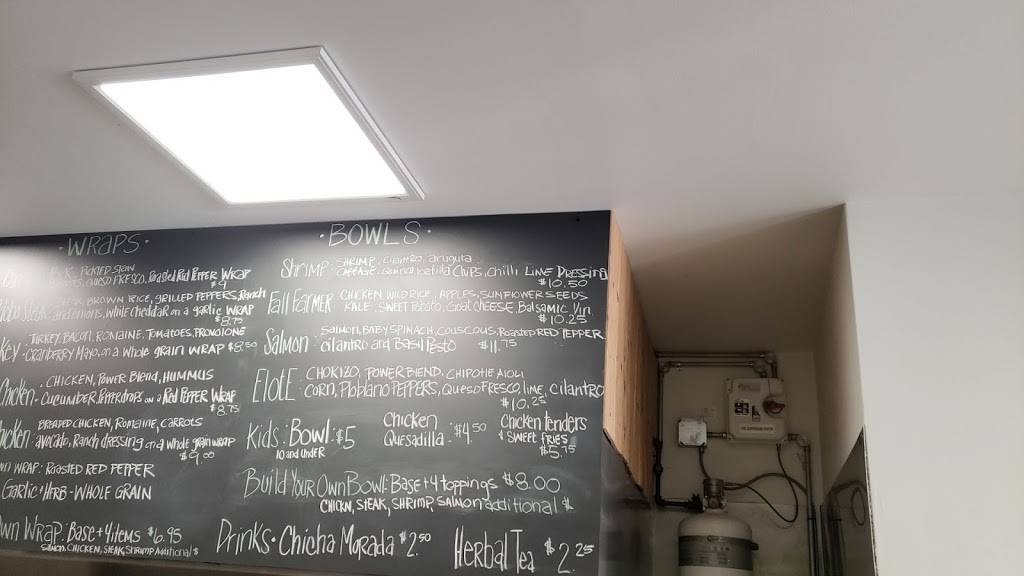 ·WRAPS·
PICKLED
QUESO FRESCO, Roasted Red Pepper WRAP
$9
BROWN RICE, GRILLED PEPPERS, Ranch
and onions, white cheddar on a garlic WRAP
$8.75
TURKEY BACON, ROMAINE, TOMATOES, PROVOLONE
Cranberry Mayo, on a Whole grain WRAP $8.50
CHICKEN, POWER Blend, HUMMUS
Chicken - CUCUMBER, Pepperdrops on a Red Pepper WRAP
$8.75
BREADED CHICKEN, Romaine, CARROTS
avocado, Ranch dressing on a whole grain wrap
$9.00
WRAP: Roasted RED PEPPER
Garlic + HERB - WHOLE GRAIN
Own WRAP Base + 4 items $6.95
Salmon, CHICKEN, STEAK, Shrimp Additional $
·BOWLS·
Shrimp · SHRIMP, cilantro, arugula
tortilla CHIPS, chili LIME DRESSING
$10.50
Fall FARMER CHICKEN, WILD RICE, APPLES, SUNFLOWER SEEDS
KALE, SWEET POTATO, Goat CHEESE, Balsamic Vin.
$10.25
Salmon: Salmon, BABY SPINACH, COUSCOUS, Roasted RED PEPPER
cilantro and Basil Pesto $11.75
ElotE CHORIZO, POWER BLEND, CHIPOTLE AIOLI
CORN, Poblano PEPPERS, QUESO FRESCO, lime, cilantro
$10.25
Kids Bowl $5
10 and UNDER
Chicken
Quesadilla $4.50
Chicken tenders
& SWEET fries
$5.75
Build Your Own Bowl: Base + 4 toppings $8.00
CHICKN, STEAK, SHRIMP, SALMON additional $
Drinks · Chicha Morada $2.50
Herbal Tea $2.25